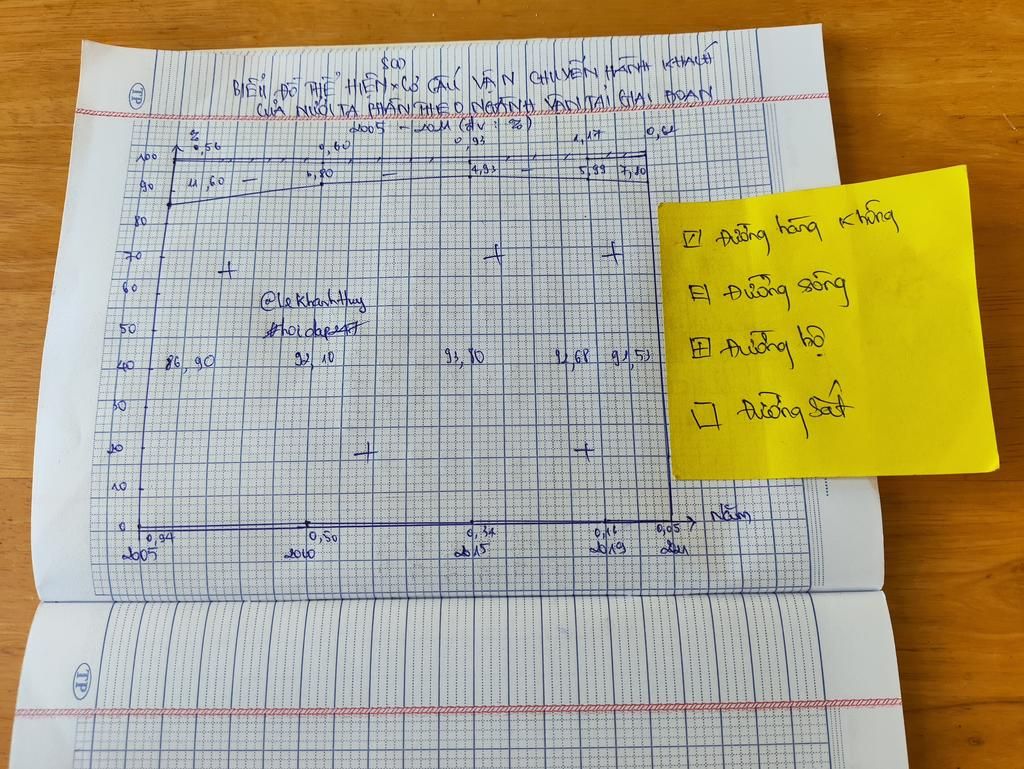 TP
SỐ
BIỂU ĐỒ THỂ HIỆN CƠ CẤU VẬN CHUYỂN HÀNH KHÁCH
CỦA NƯỚC TA PHÂN THEO NGÀNH VẬN TẢI GIAI ĐOẠN
2005 - 2021 (đv: %)
%
0,56 0,60 0,93 1,17 0,62
100
11,60 6,80 4,93 5,99 7,80
90
80
70
60
@lekhanhthuy
50
#hoidap247
40 86,90 92,10 93,80 92,68 91,53
30
20
10
0
Năm
0,94 0,50 0,34 0,16 0,05
2005 2010 2015 2019 2021
Đường hàng không
Đường sông
Đường bộ
Đường sắt
TP